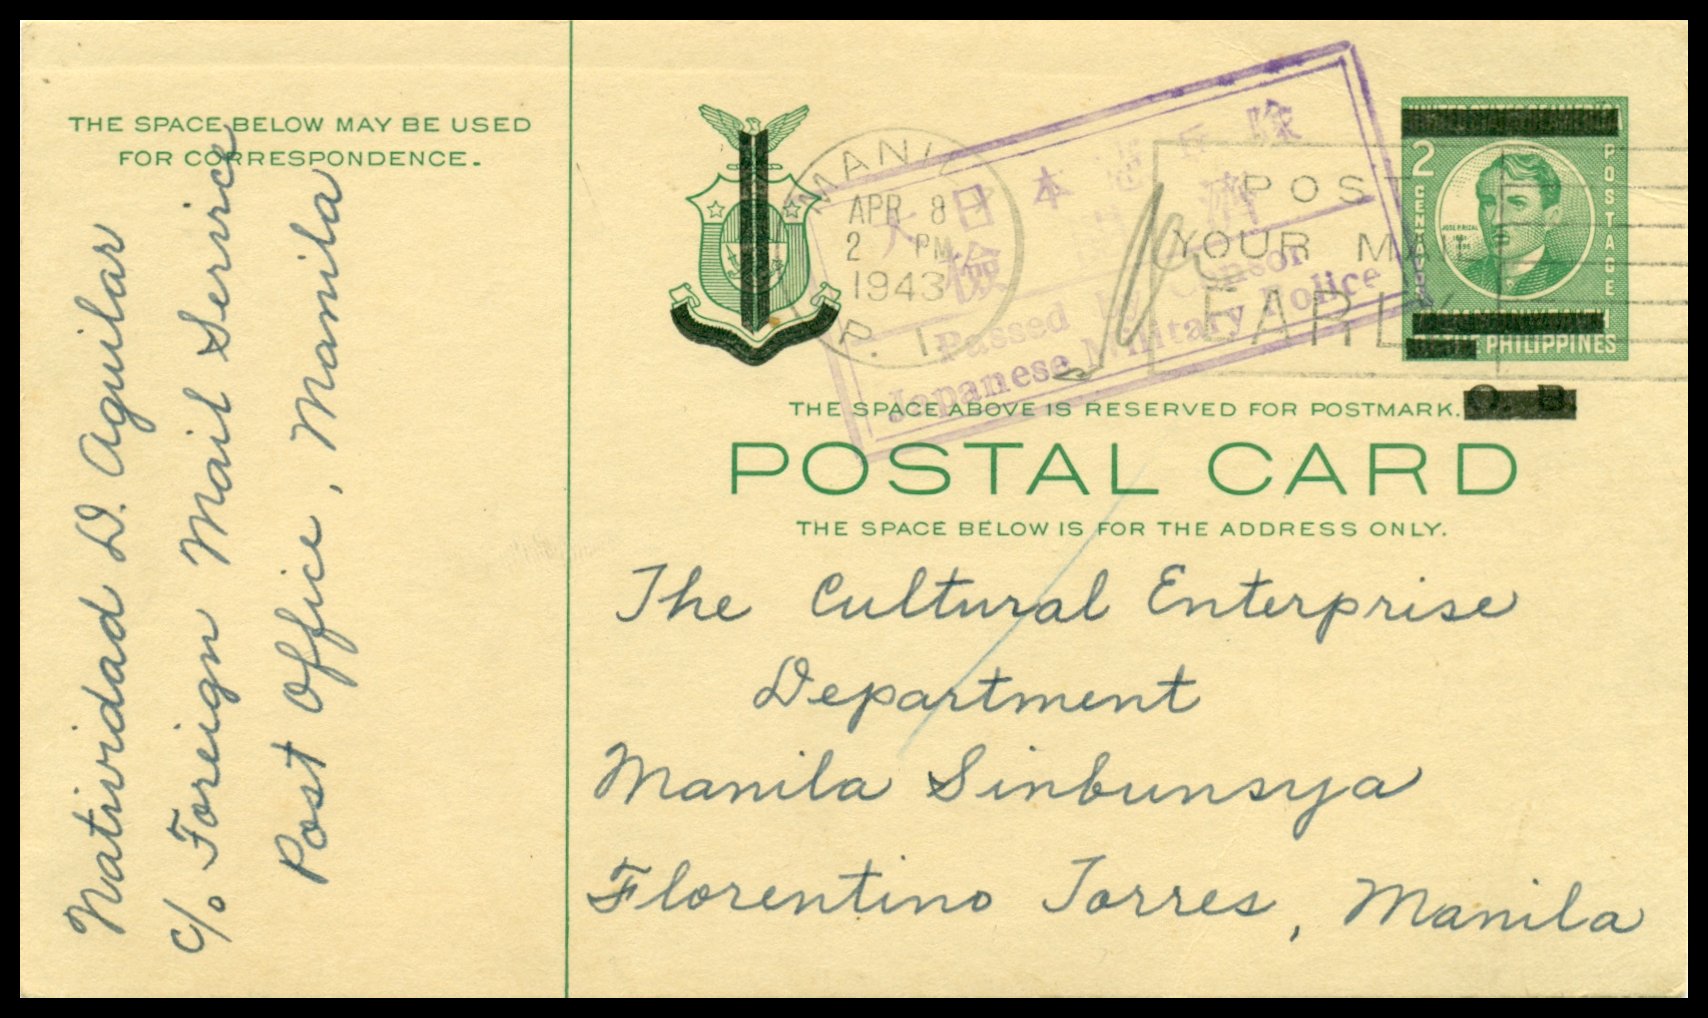 THE SPACE BELOW MAY BE USED
FOR CORRESPONDENCE.
Natividad D. Aguilar
c/o Foreign Mail Service
Post Office, Manila
MANILA
APR 8
2 PM
1943
P. I.
大日本憲兵隊
検 濟
Passed by Censor
Japanese Military Police
POST
YOUR MA
EARLY
2
CENTAVOS
POSTAGE
JOSE RIZAL
1861
1896
OF THE PHILIPPINES
O. B.
THE SPACE ABOVE IS RESERVED FOR POSTMARK.
POSTAL CARD
THE SPACE BELOW IS FOR THE ADDRESS ONLY.
The Cultural Enterprise
Department
Manila Sinbunsya
Florentino Torres, Manila